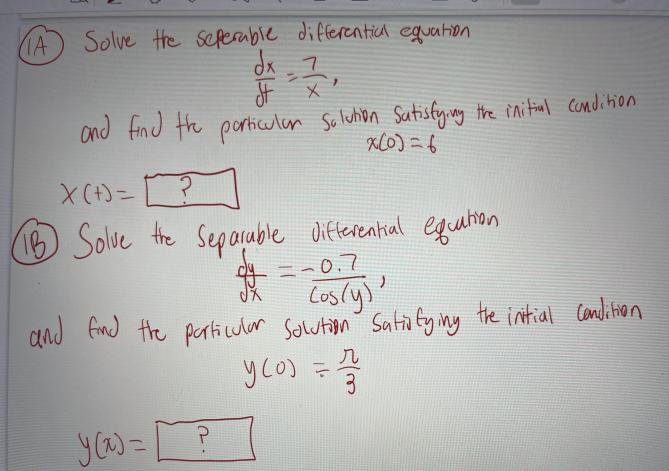 1A Solve the seperable differential equation
dx/dt = 7/x,
and find the particular solution satisfying the initial condition
x(0) = 6
x(t) = ?
1B Solve the separable differential equation
dy/dx = -0.7/cos(y),
and find the particular solution satisfying the initial condition
y(0) = π/3
y(x) = ?